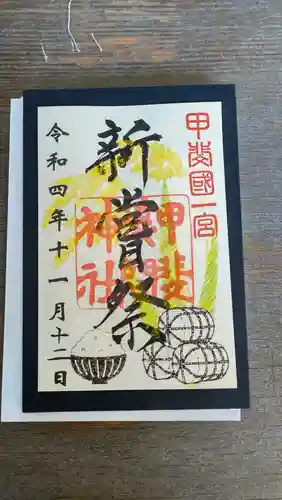 甲斐國一宮
新嘗祭
神社
令和四年十一月十二日